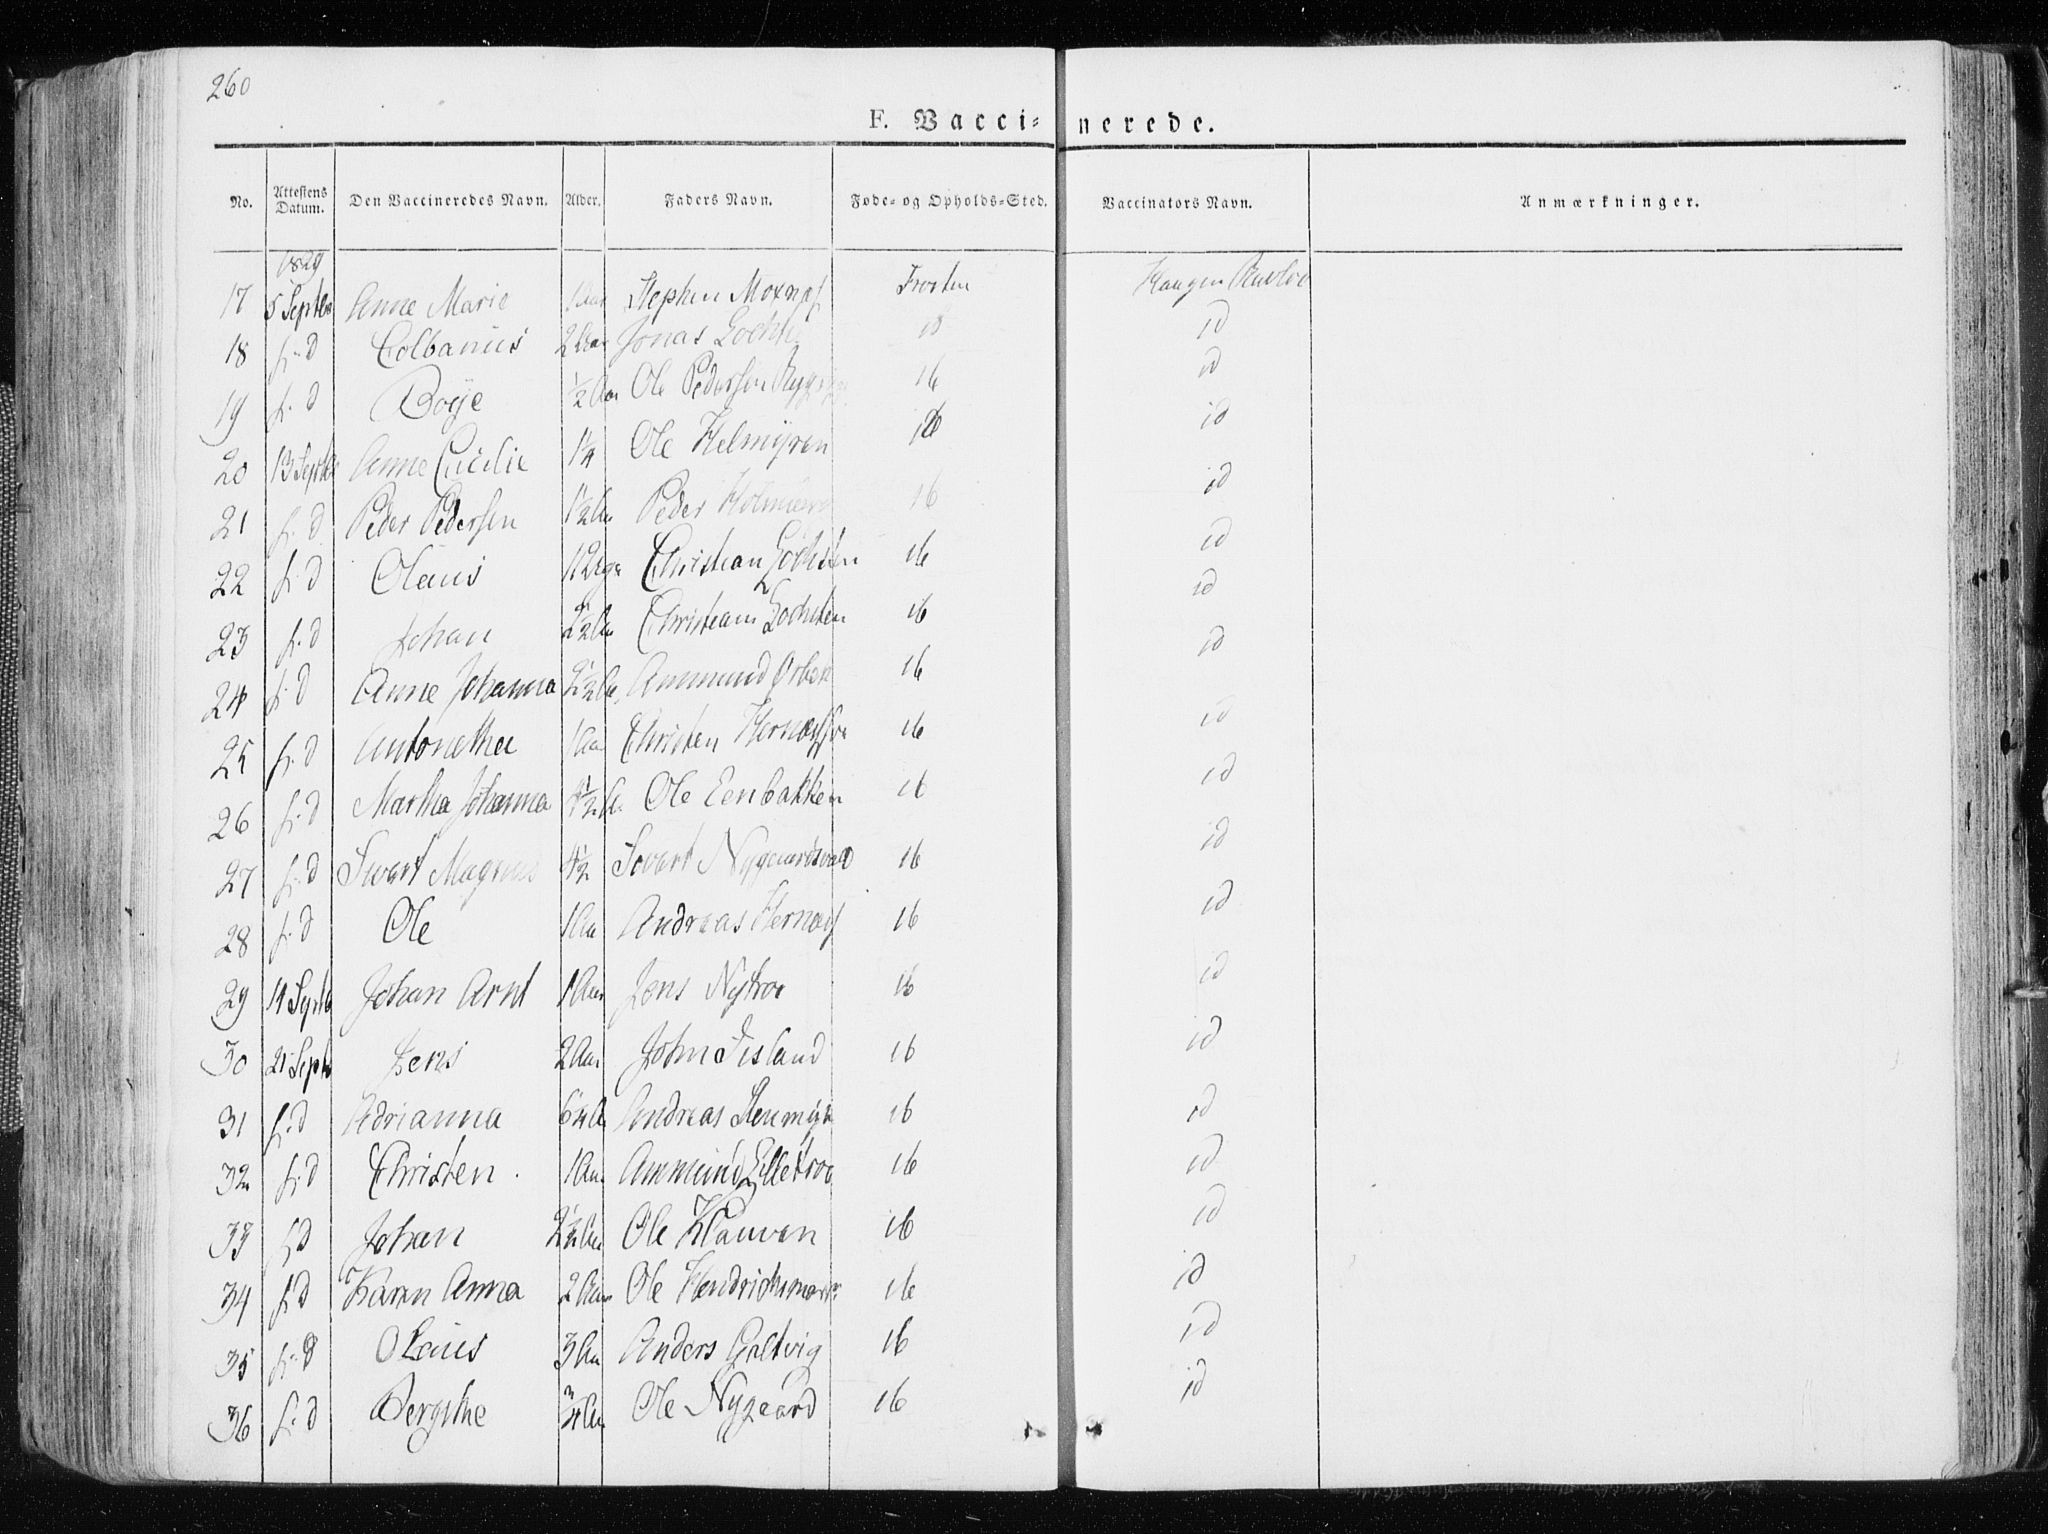 260
F. Vaccinerede.
No. Attestens Datum. Den Vaccineredes Navn. Alder. Faders Navn. Føde- og Opholds-Sted. Vaccinators Navn. Anmærkninger.
1829
17 5 Septbr Anne Marie 1 Aar Stephen Moxnæs Frosten
18 f. d Colbanius 2 Aar Jonas id
19 f. d Boije 1/2 Aar Ole Pedersen ib id
20 13 Septbr Anne Cicilie 1 1/4 Ole Helmyren id
21 f. d Peder Pedersen 1 1/2 Aar Peder ib id
22 f. d Olaus Christian ib id
23 f. d Johan 2 1/2 Aar Christian ib id
24 f. d Anne Johanna 2 1/2 Aar Ammund ib id
25 f. d Antonetha 1 Aar Christen ib id
26 f. d Martha Johanna 4 1/2 A. Ole Eenbakken ib id
27 f. d Sivart Magnus 4 1/2 Sivart Nygaardsvald ib id
28 f. d Ole 1 Aar Andreas Hernæs ib id
29 14 Septb Johan Arnt 1 Aar Jens Nystroe ib id
30 21 Septb Jens 2 Aar John ib id
31 f. d Adrianna Andreas ib id
32 f. d Christen 1 Aar Ammund ib id
33 f. d Johan 2 1/2 Aar Ole Klauven ib id
34 f. d Karen Anna 2 Aar Ole ib id
35 f. d Olaus 3 Aar Anders ib id
36 f. d Bergithe 3/4 Aar Ole Nygaard ib id